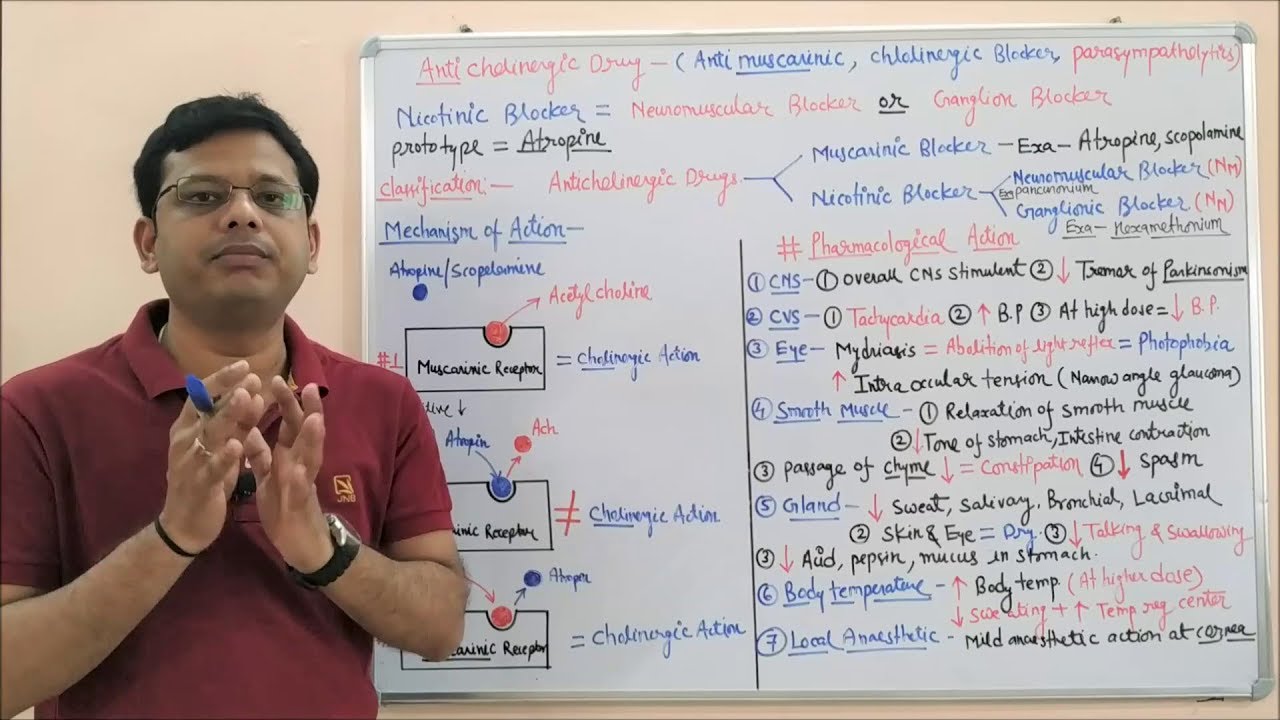 Anti cholinergic Drug – (Anti muscarinic, chlolinergic Blocker, parasympatholytics)
Nicotinic Blocker = Neuromuscular Blocker or Ganglion Blocker
prototype = Atropine
classification:- Anticholinergic Drugs
Muscarinic Blocker – Exa – Atropine, scopolamine
Nicotinic Blocker
Neuromuscular Blocker (NM)
Exa pancuronium
Ganglionic Blocker (NM)
Exa – Hexamethonium
Mechanism of Action –
Atropine/Scopolamine
Acetyl choline
#1
Muscarinic Receptor
= Cholinergic Action
Atropin
Ach
inic Receptor
≠ Cholinergic Action
Atropin
carinic Receptor
= Cholinergic Action
# Pharmacological Action
① CNS – ① overall CNS stimulent ② ↓ Tremar of Parkinsonism
② CVS – ① Tachycardia ② ↑ B.P ③ At high dose = ↓ B.P.
③ Eye – Mydriasis = Abolition of light reflex = Photophobia
↑ Intra occular tension (Narrow angle glaucoma)
④ Smooth Muscle – ① Relaxation of smooth muscle
② ↓ Tone of stomach, Intestine contraction
③ passage of chyme ↓ = Constipation ④ ↓ Spasm
⑤ Gland – ↓ Sweat, Salivary, Bronchial, Lacrimal
② Skin & Eye = Dry. ③ ↓ Talking & swallowing
③ ↓ Acid, pepsin, mucus in stomach.
⑥ Body temperature – ↑ Body temp. (At higher dose)
↓ Sweating + ↑ Temp reg center
⑦ Local Anaesthetic – Mild anaesthetic action at cornea
JNB